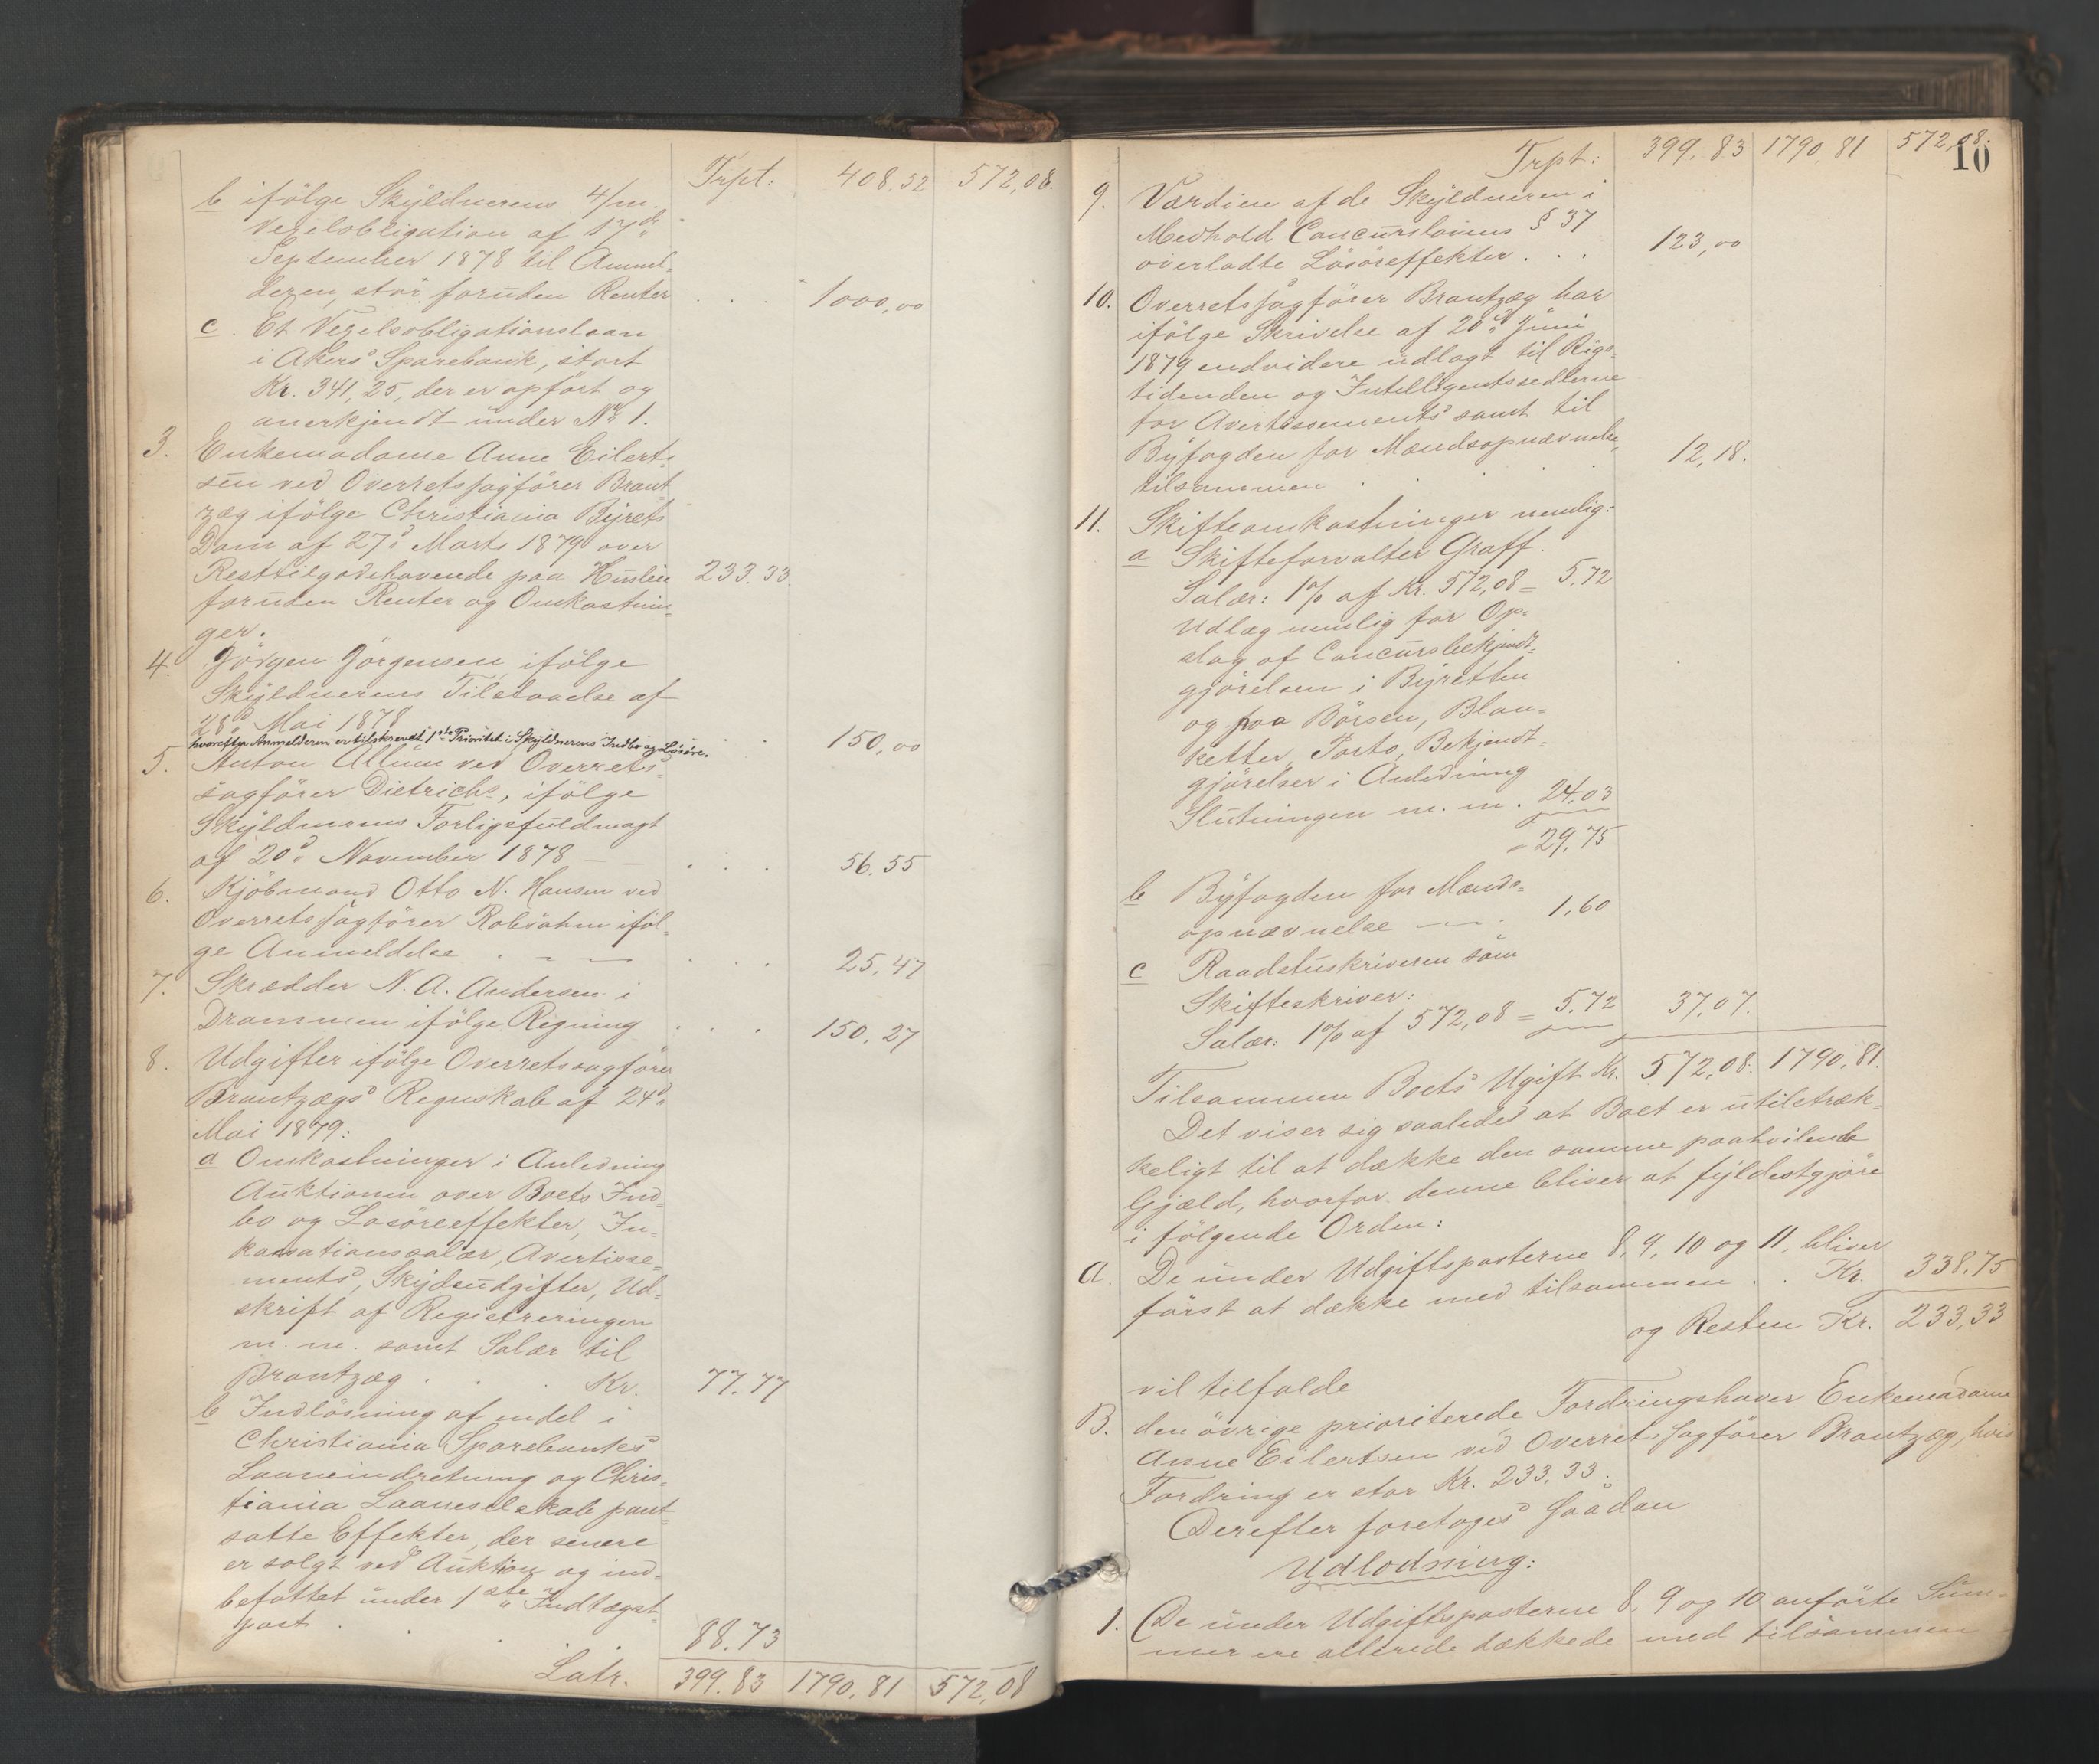 Trpt: 408.52 572,08.
b ifölge Skyldnerens 4/m.
Vexelobligation af 17d.
September 1878 til Anmel-
deren, stor foruden Renter . . . 1000,00
c. Et Vexelobligationslaan
i Akers Sparebank, stort
Kr. 341,25, der er opfört og
anerkjendt under No 1.
3. Enkemadame Anne Eilert-
sen ved Overretssagförer Brant-
zæg ifölge Christiania Byrets
Dom af 27d. Marts 1879 over
Resttilgodehavende paa Husleie 233.33.
foruden Renter og Omkostnin-
ger.
4. Jörgen Jörgensen, ifölge
Skyldnerens Tilstaaelse af
28d. Mai 1878 . . 150,00
hvorefter Anmelderen er tilskrevet 1ste Prioritet i Skyldnerens Indbo og Lösöre.
5. Anton Allum ved Overrets-
sagförer Dietrichs, ifölge
Skyldnerens Forligsfuldmagt
af 20d. November 1878 — — . . . 56.55
6. Kjöbmand Otto N. Hansen ved
Overretssagförer Robsahm iföl-
ge Anmeldelse . — — — . . . 25,47
7. Skrædder N. A. Andersen i
Drammen ifölge Regning . . . 150.27
8. Udgifter ifölge Overretssagförer
Brantzægs Regnskab af 24d.
Mai 1879:
a Omkostninger i Anledning
Auktionen over Boets Ind-
bo og Lösöreeffekter, In-
kassationssalær, Avertisse-
ments, Skydsudgifter, Ud-
skrift af Registreringen
m. m. samt Salær til
Brantzæg . . . Kr. 77.77
b Indlösning af endel i
Christiania Sparebanks
Laaneindretning og Chris-
tiania Laaneselskab pant-
satte Effekter, der senere
er solgt ved Auktion og ind-
befattet under 1ste Indtægst-
post . . . . 88.73
Latr. 399.83 1790.81 572,08
10
Trpt: 399.83 1790.81 572,08.
9. Værdien af de Skyldneren i
Medhold Concurslovens § 37
overladte Lösöreffekter . . . 123,00
10. Overretssagförer Brantzæg har
ifölge Skrivelse af 20d. Juni
1879 endvidere udlagt til Rigs-
tidenden og Intelligentssedlerne
for Avertissements samt til
Byfogden for Mændsopnævnelse,
tilsammen . . . . 12,18.
11. Skifteomkostninger nemlig:
a Skifteforvalter Graff.
Salær: 1% af Kr. 572,08 = 5.72
Udlæg nemlig for Op-
slag af Concursbekjendt-
gjörelsen i Byretten
og paa Börsen, Blan-
ketter, Porto, Bekjendt-
gjörelser i Anledning
Slutningen m. m. . 24.03
= 29.75
b Byfogden for Mænds-
opnævnelse — — . 1,60
c Raadstuskriveren som
Skifteskriver:
Salær: 1% af 572,08 = 5.72 37.07.
Tilsammen Boets Ugift Kr. 572,08. 1790,81.
Det viser sig saaledes at Boet er utilstræk-
keligt til at dække den samme paahvilende
Gjæld, hvorfor denne bliver at fyldestgjöre
i fölgende Orden:
A. De under Udgiftsposterne 8, 9, 10 og 11, bliver
först at dække med tilsammen . . Kr. 338.75
og Resten Kr. 233,33
vil tilfalde
B. den övrige prioriterede Fordringshaver Enkemadame
Anne Eilertsen ved Overretssagförer Brantzæg, hvis
Fordring er stor Kr. 233.33.
Derefter foretoges saadan
Udlodning:
1. De under Udgiftsposterne 8, 9 og 10 anförte Sum-
mer ere allerede dækkede med tilsammen